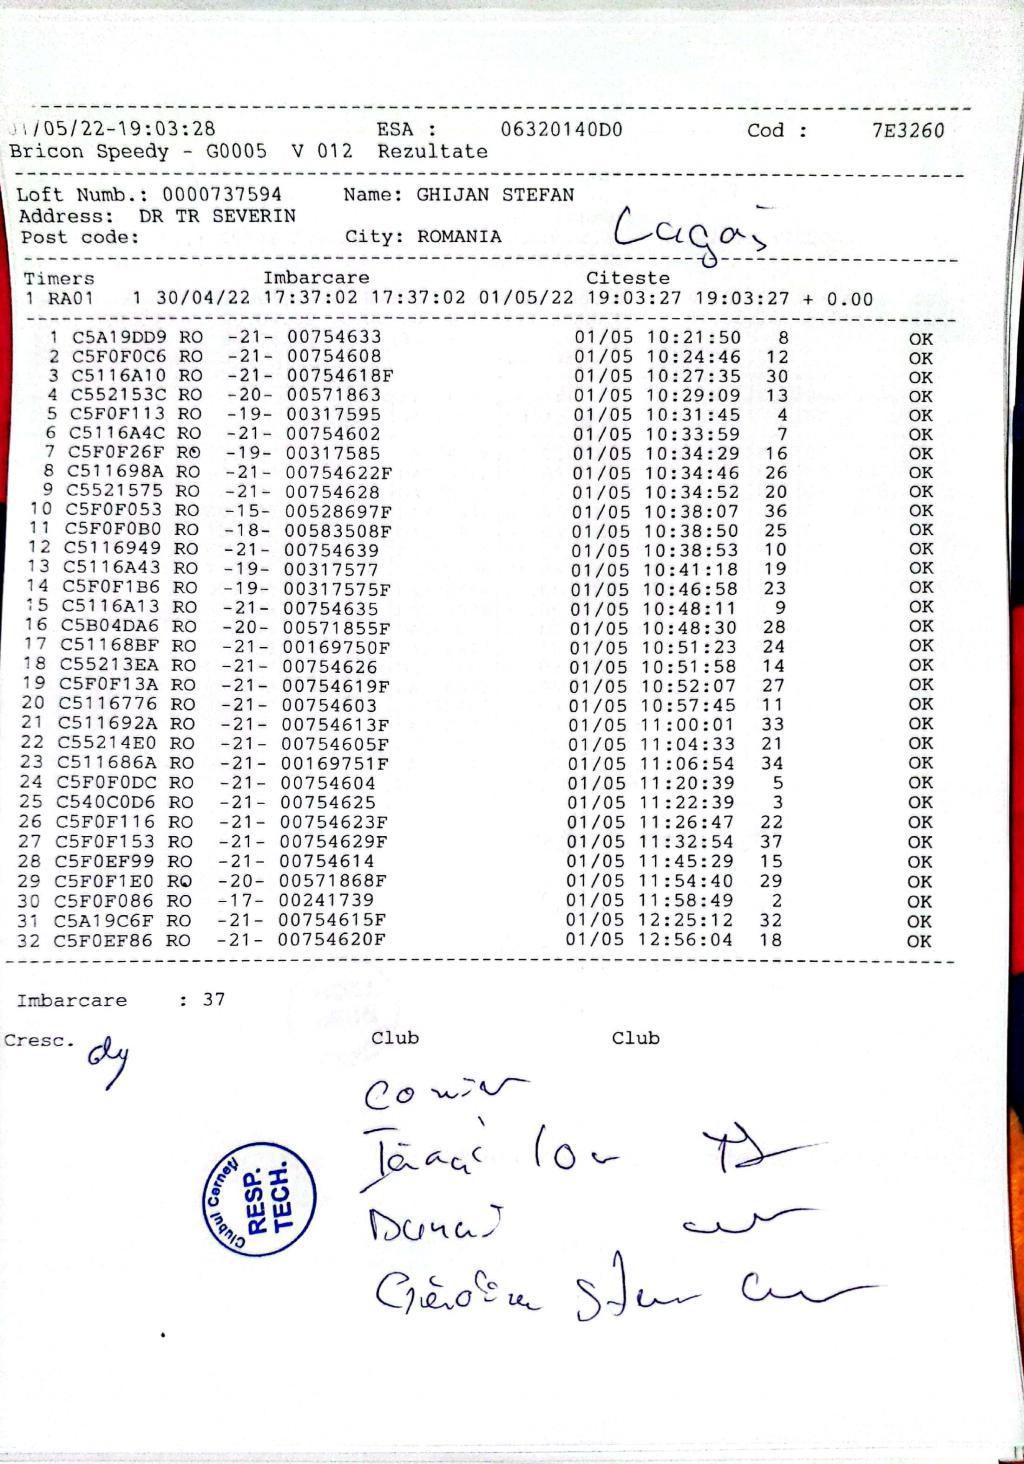 01/05/22-19:03:28 ESA : 06320140D0 Cod : 7E3260
Bricon Speedy - G0005 V 012 Rezultate
Loft Numb.: 0000737594 Name: GHIJAN STEFAN
Address: DR TR SEVERIN
Post code: City: ROMANIA
Timers Imbarcare Citeste
1 RA01 1 30/04/22 17:37:02 17:37:02 01/05/22 19:03:27 19:03:27 + 0.00
1 C5A19DD9 RO -21- 00754633 01/05 10:21:50 8 OK
2 C5F0F0C6 RO -21- 00754608 01/05 10:24:46 12 OK
3 C5116A10 RO -21- 00754618F 01/05 10:27:35 30 OK
4 C552153C RO -20- 00571863 01/05 10:29:09 13 OK
5 C5F0F113 RO -19- 00317595 01/05 10:31:45 4 OK
6 C5116A4C RO -21- 00754602 01/05 10:33:59 7 OK
7 C5F0F26F RO -19- 00317585 01/05 10:34:29 16 OK
8 C511698A RO -21- 00754622F 01/05 10:34:46 26 OK
9 C5521575 RO -21- 00754628 01/05 10:34:52 20 OK
10 C5F0F053 RO -15- 00528697F 01/05 10:38:07 36 OK
11 C5F0F0B0 RO -18- 00583508F 01/05 10:38:50 25 OK
12 C5116949 RO -21- 00754639 01/05 10:38:53 10 OK
13 C5116A43 RO -19- 00317577 01/05 10:41:18 19 OK
14 C5F0F1B6 RO -19- 00317575F 01/05 10:46:58 23 OK
15 C5116A13 RO -21- 00754635 01/05 10:48:11 9 OK
16 C5B04DA6 RO -20- 00571855F 01/05 10:48:30 28 OK
17 C51168BF RO -21- 00169750F 01/05 10:51:23 24 OK
18 C55213EA RO -21- 00754626 01/05 10:51:58 14 OK
19 C5F0F13A RO -21- 00754619F 01/05 10:52:07 27 OK
20 C5116776 RO -21- 00754603 01/05 10:57:45 11 OK
21 C511692A RO -21- 00754613F 01/05 11:00:01 33 OK
22 C55214E0 RO -21- 00754605F 01/05 11:04:33 21 OK
23 C511686A RO -21- 00169751F 01/05 11:06:54 34 OK
24 C5F0F0DC RO -21- 00754604 01/05 11:20:39 5 OK
25 C540C0D6 RO -21- 00754625 01/05 11:22:39 3 OK
26 C5F0F116 RO -21- 00754623F 01/05 11:26:47 22 OK
27 C5F0F153 RO -21- 00754629F 01/05 11:32:54 37 OK
28 C5F0EF99 RO -21- 00754614 01/05 11:45:29 15 OK
29 C5F0F1E0 RO -20- 00571868F 01/05 11:54:40 29 OK
30 C5F0F086 RO -17- 00241739 01/05 11:58:49 2 OK
31 C5A19C6F RO -21- 00754615F 01/05 12:25:12 32 OK
32 C5F0EF86 RO -21- 00754620F 01/05 12:56:04 18 OK
Imbarcare : 37
Cresc. Club Club
Clubul Cerneți
RESP.
TECH.